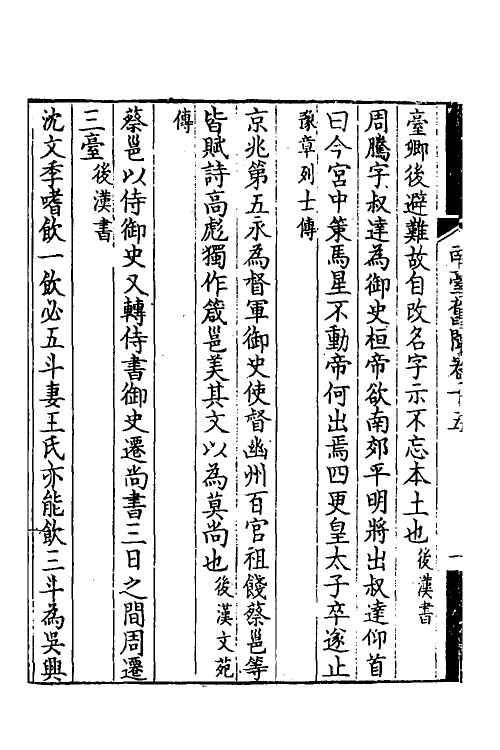 臺卿後避難故自改名字示不忘本土也後漢書
周騰字叔達為御史桓帝欲南郊平明將出叔達仰首
曰今宮中策馬星不動帝何出焉四更皇太子卒遂止
豫章列士傳
京兆第五永為督軍御史使督幽州百官祖餞蔡邕等
皆賦詩高彪獨作箴邕美其文以為莫尚也後漢文苑
傳
蔡邕以侍御史又轉侍書御史遷尚書三日之間周遷
三臺後漢書
沈文季嗜飲一飲必五斗妻王氏亦能飲三斗為吳興